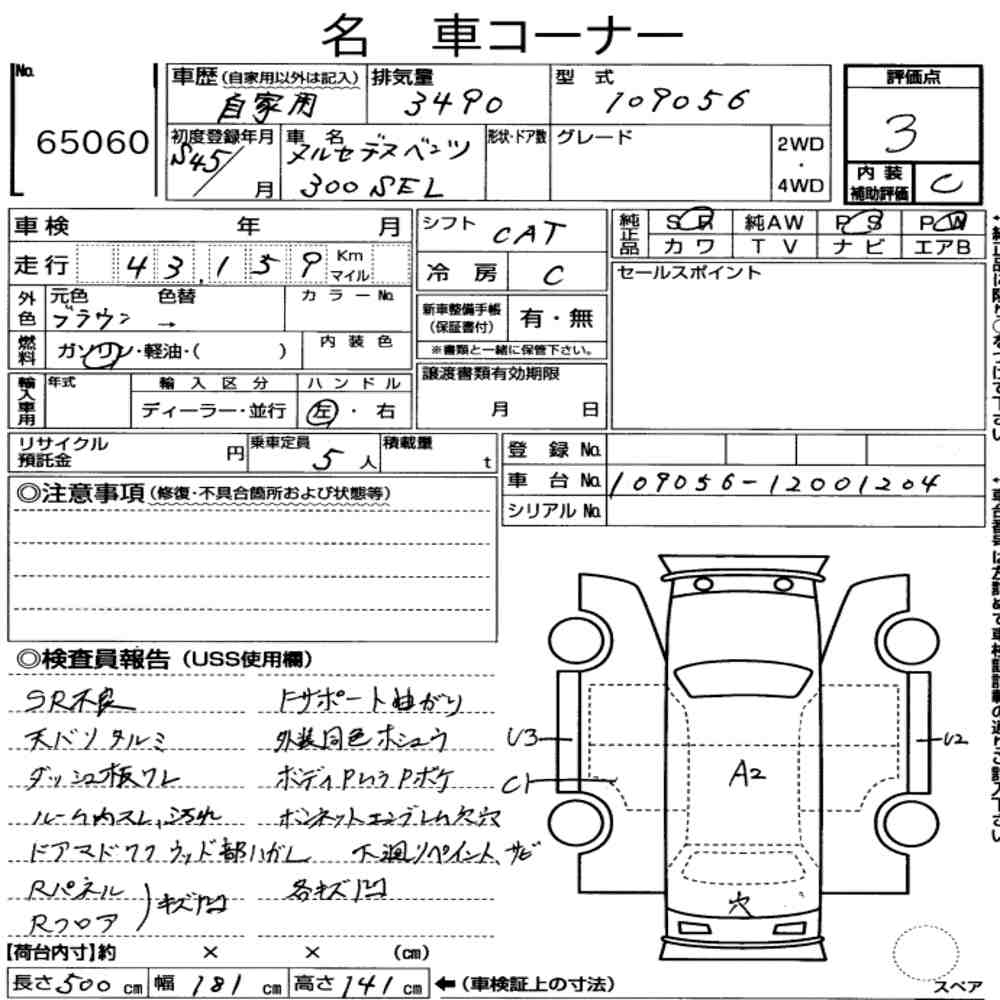 名 車コーナー
No.
65060
車歴(自家用以外は記入)
自家用
排気量
3490
型 式
109056
評価点
3
初度登録年月
S45/
月
車 名
メルセデスベンツ
300 SEL
形状・ドア数
グレード
2WD
・
4WD
内装
補助評価
C
車検 年 月
走行 43,159 Km
マイル
外色
元色 色替
ブラウン →
カラーNo.
燃料
ガソリン・軽油・( )
内装色
輸入車用
年式
輸入区分
ディーラー・並行
ハンドル
左・右
シフト
CAT
冷房
C
新車整備手帳
(保証書付)
有・無
※書類と一緒に保管下さい。
譲渡書類有効期限
月 日
純正品
SR 純AW PS PW
カワ TV ナビ エアB
セールスポイント
リサイクル
預託金
円
乗車定員
5人
積載量
t
登録No.
車台No. 109056-12001204
シリアルNo.
◎注意事項(修復・不具合箇所および状態等)
◎検査員報告(USS使用欄)
SR不良
天バリタルミ
ダッシュ板ワレ
ルーム内スレ,汚れ
ドアマドワク ウッド部ハガレ
Rパネル
Rフロア
キズ凹
Fサポート曲がり
外装同色ホシュウ
ボディPムラPボケ
ボンネットエンブレム欠穴
下廻リペイント、サビ
各キズ凹
U3
C1
A2
U2
穴
スペア
【荷台内寸】約 × × (cm)
長さ500cm 幅181cm 高さ141cm ←(車検証上の寸法)